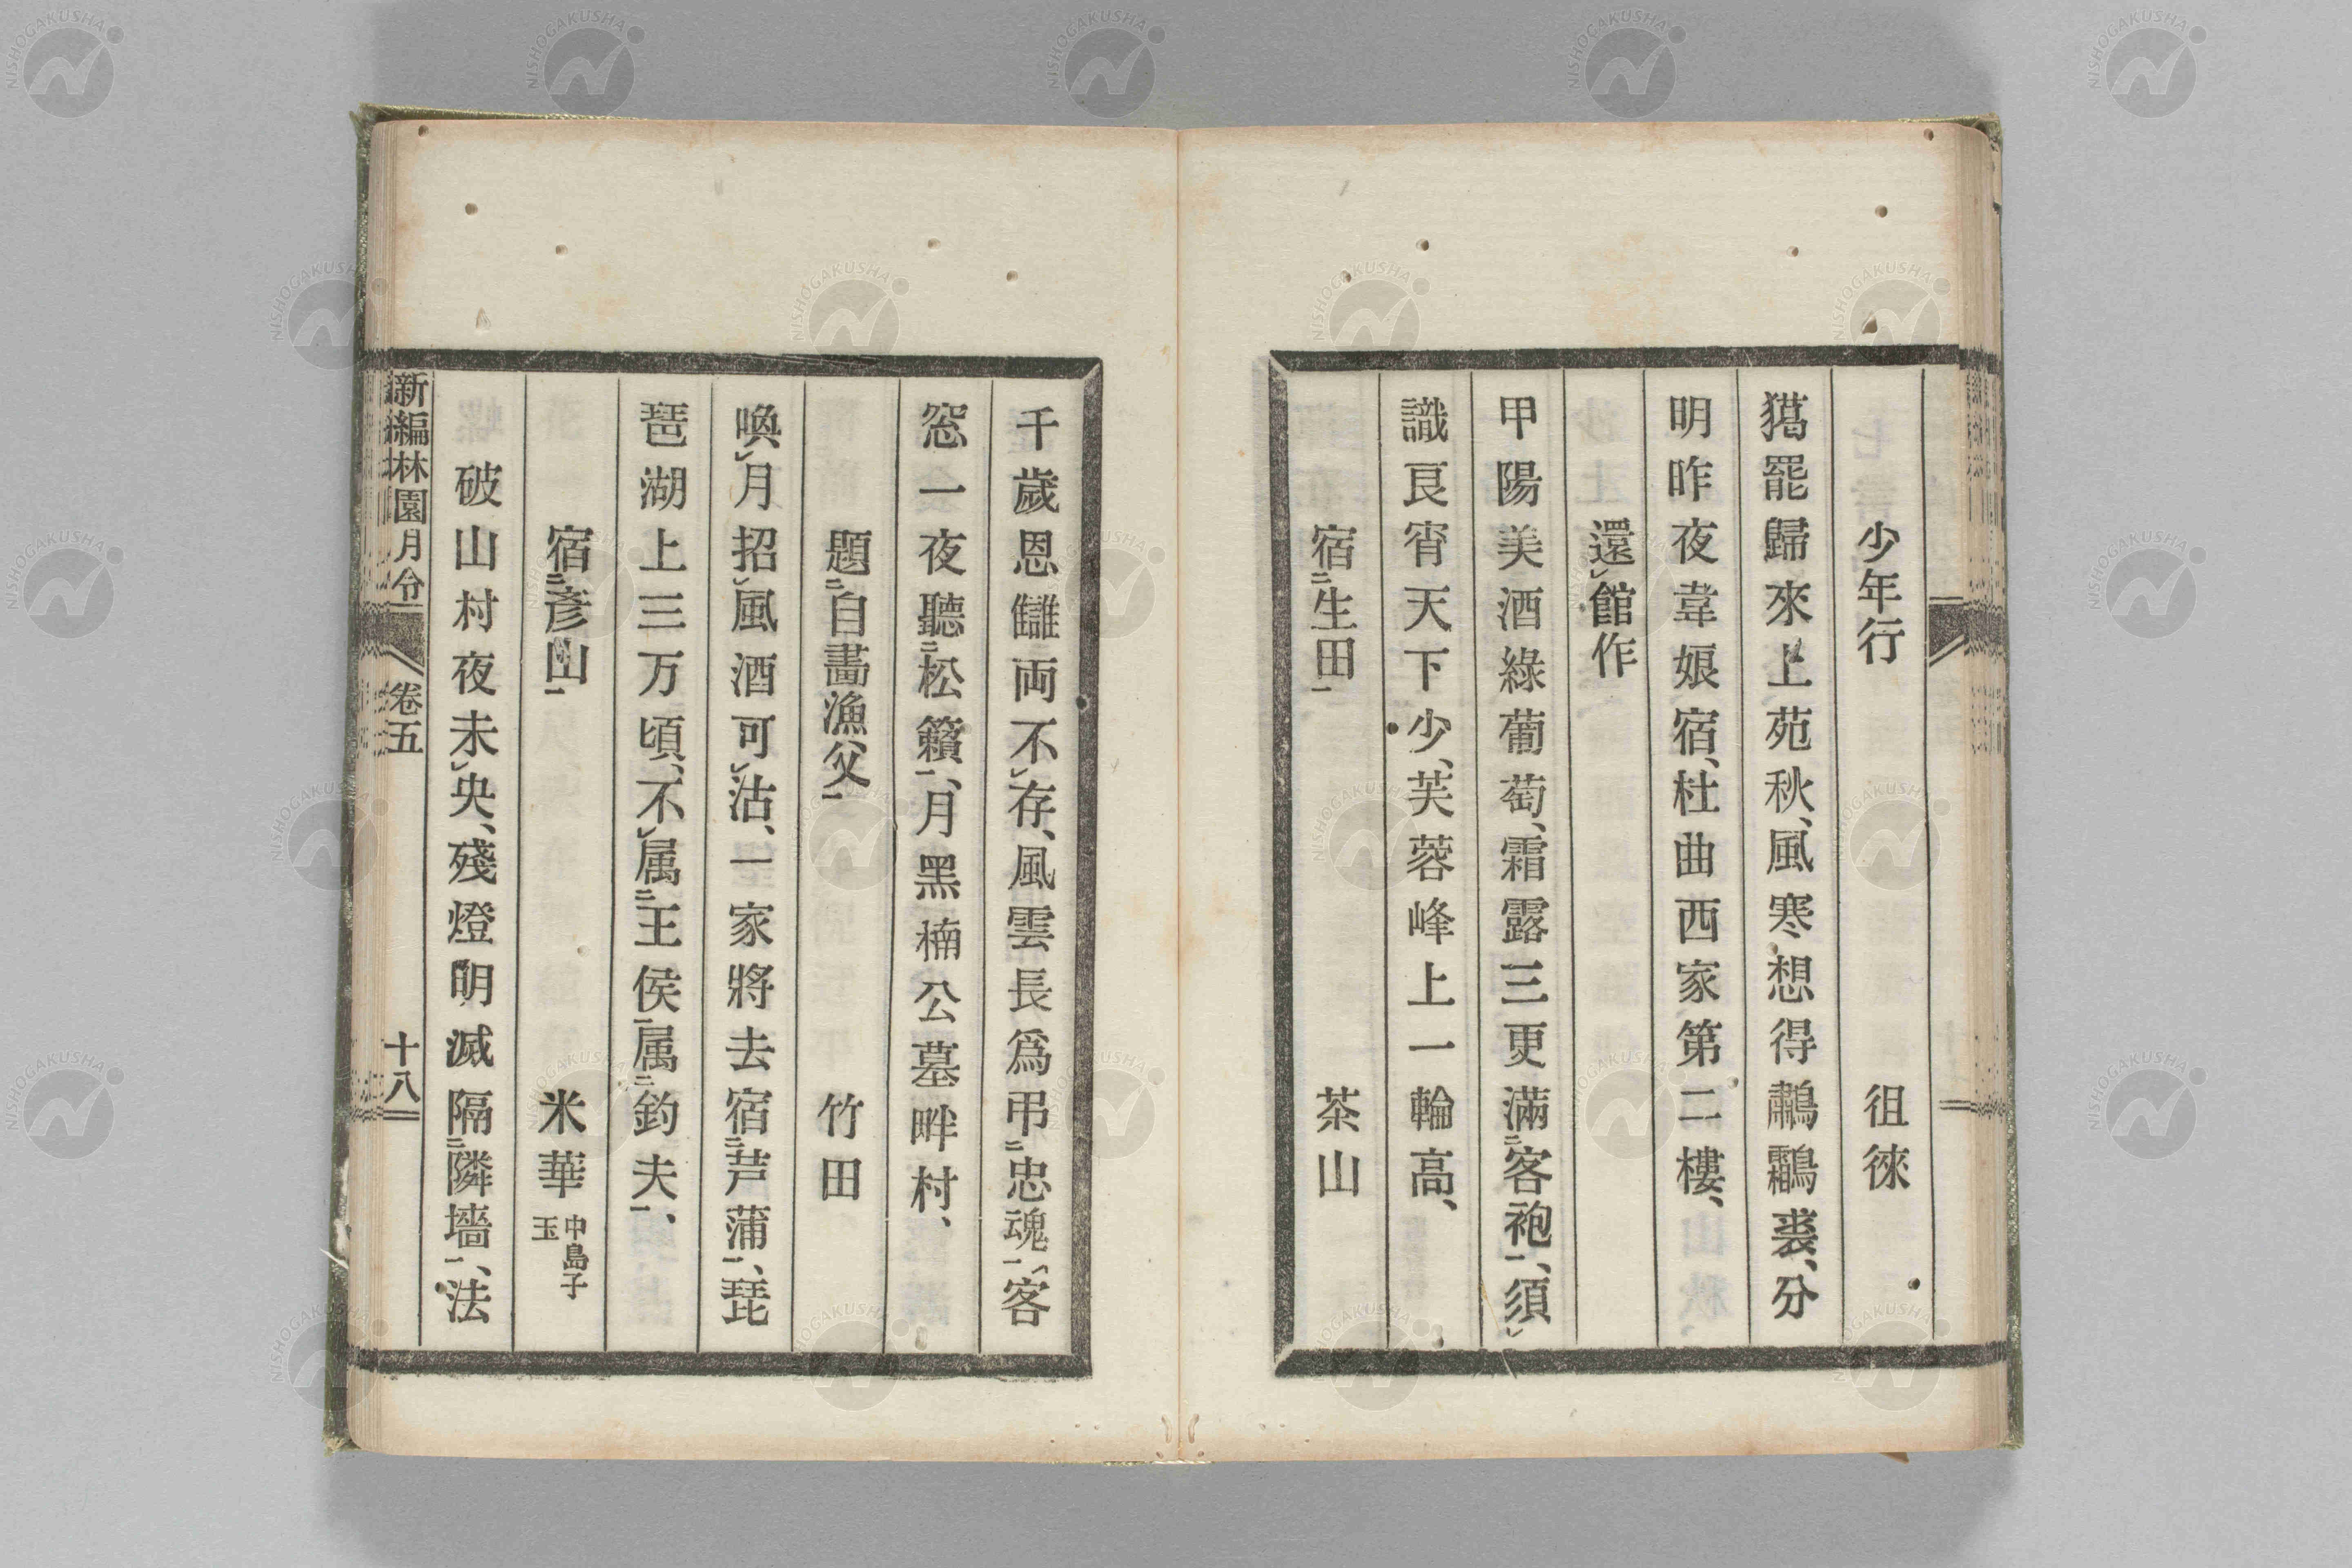 少年行 徂徠
獦罷歸來上苑秋、風寒想得鷫鸘裘、分
明昨夜韋娘宿、杜曲西家第二樓、
還㆑館作
甲陽美酒綠葡萄、霜露三更滿㆓客袍㆒、須㆑
識良宵天下少、芙蓉峰上一輪高、
宿㆓生田㆒ 茶山
千歲恩讎両不㆑存、風雲長爲吊㆓忠魂㆒、客
窓一夜聽㆓松籟㆒、月黑楠公墓畔村、
題㆓自畵漁父㆒ 竹田
喚㆑月招㆑風酒可㆑沽、一家將去宿㆓芦蒲㆒、琵
琶湖上三万頃、不㆑属㆓王侯㆒属㆓釣夫㆒、
宿㆓彦山㆒ 米華 中島子玉
破山村夜未㆑央、殘燈明滅隔㆓隣墻㆒、法
新編林園月令 卷五 十八
NISHOGAKUSHA